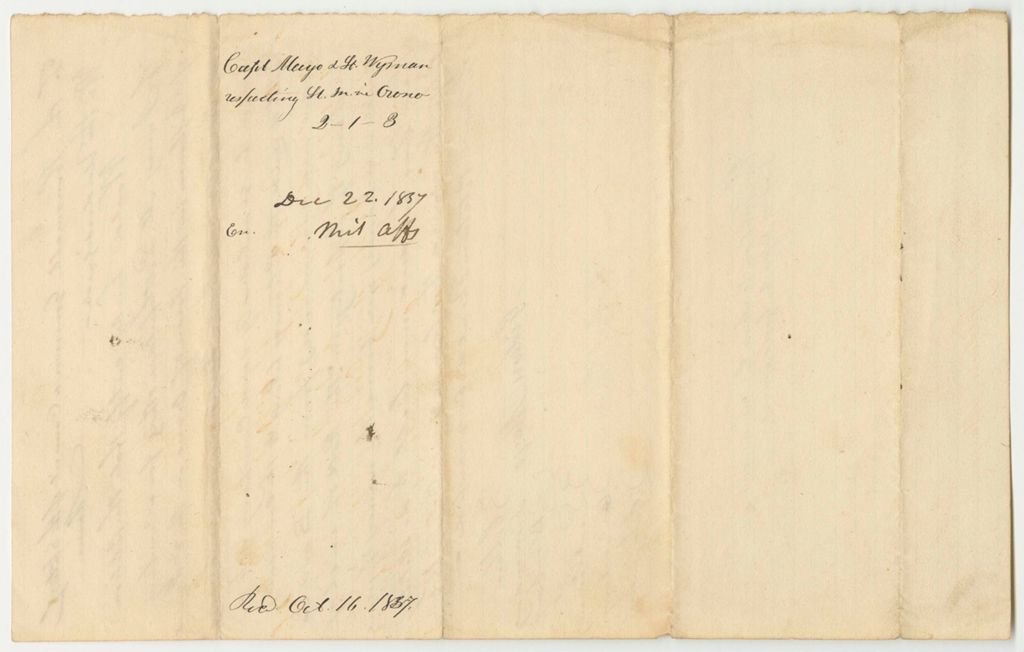 Capt Mayo & Lt. Wyman
respecting Lt. In. in Orono
2-1-8
Dec 22. 1837
En. Mil Affs
Recd. Oct. 16. 1837.